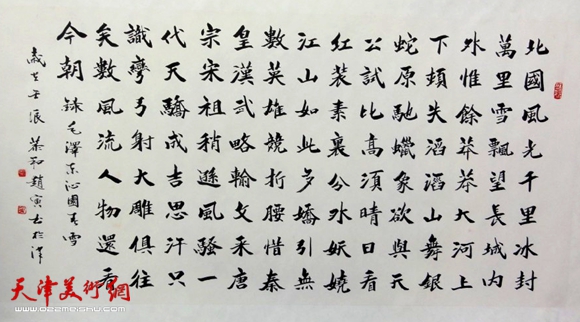 北國風光千里冰封
萬里雪飄望長城内
外惟餘莽莽大河上
下頓失滔滔山舞銀
蛇原馳蠟象欲與天
公試比高須晴日看
紅裝素裹分外妖嬈
江山如此多嬌引無
數英雄競折腰惜秦
皇漢武略輸文采唐
宗宋祖稍遜風騷一
代天驕成吉思汗只
識彎弓射大雕俱往
矣數風流人物還看
今朝 錄毛澤東沁園春雪
歲在壬辰 趙寅 於津
天津美術網
www.022meishu.com